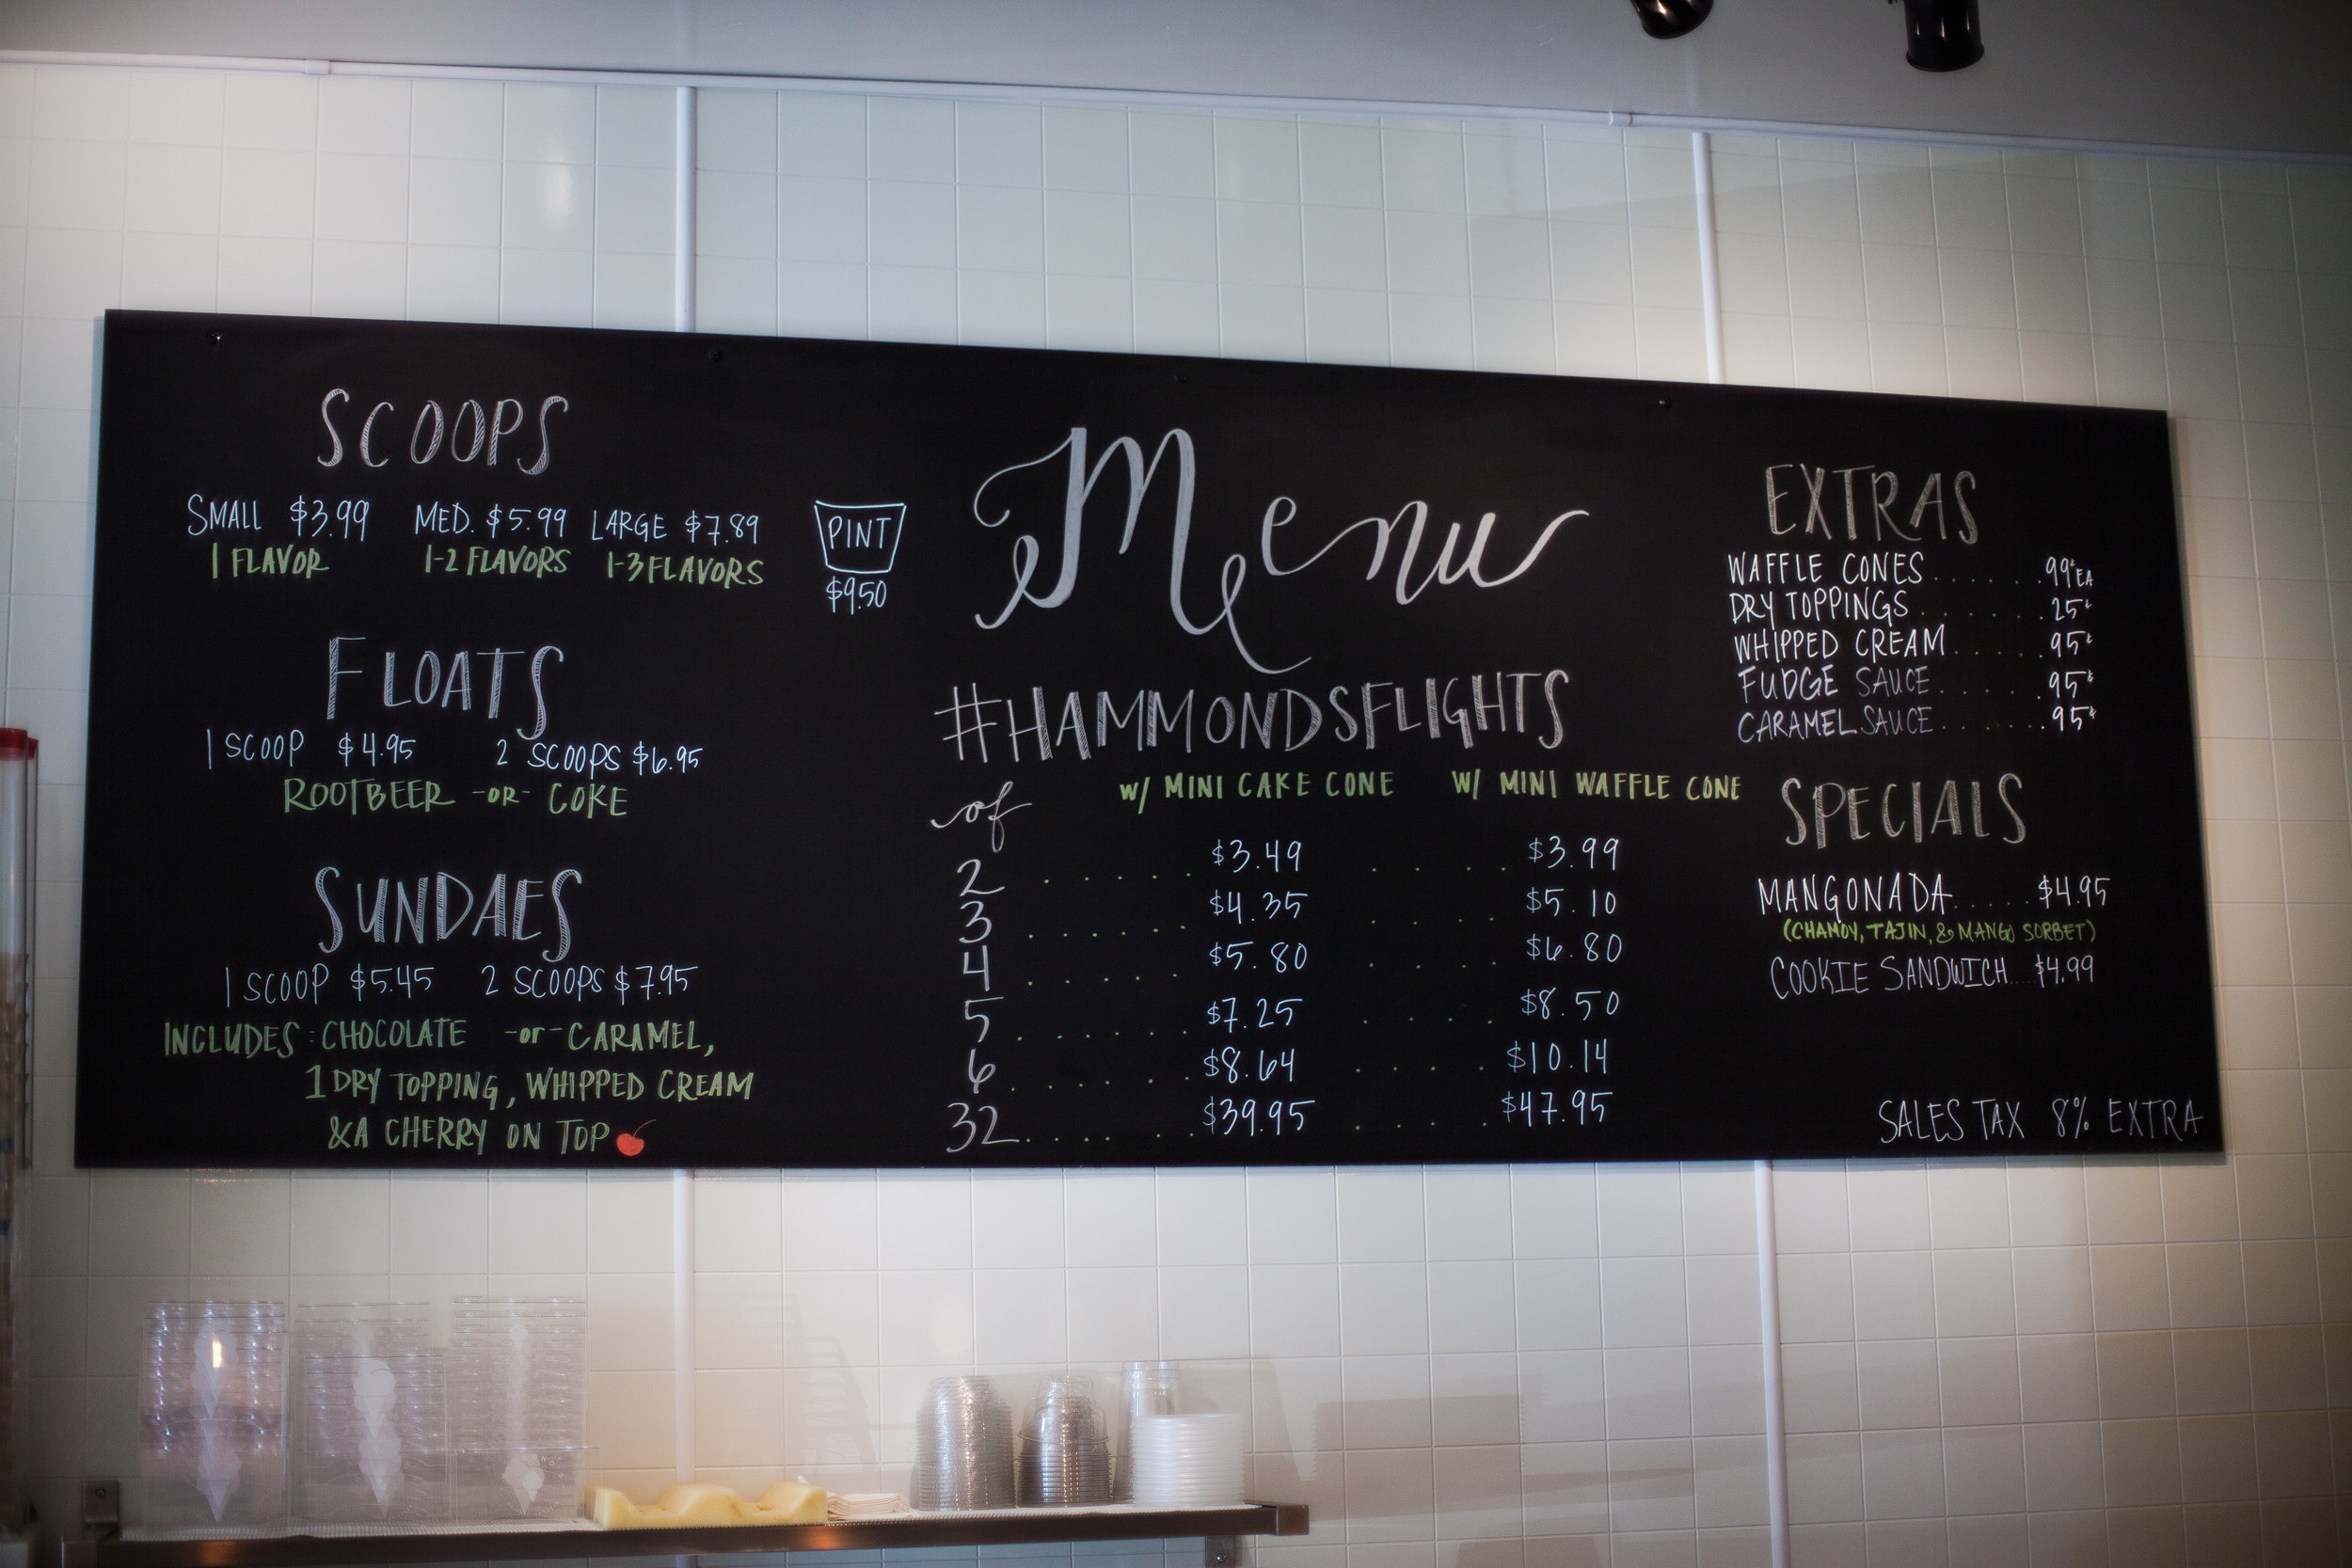 SCOOPS
SMALL $3.99 MED. $5.99 LARGE $7.89
1 FLAVOR 1-2 FLAVORS 1-3 FLAVORS
PINT
$9.50
FLOATS
1 SCOOP $4.95 2 SCOOPS $6.95
ROOTBEER -OR- COKE
SUNDAES
1 SCOOP $5.45 2 SCOOPS $7.95
INCLUDES: CHOCOLATE -or- CARAMEL,
1 DRY TOPPING, WHIPPED CREAM
& A CHERRY ON TOP
Menu
#HAMMONDSFLIGHTS
of w/ MINI CAKE CONE w/ MINI WAFFLE CONE
2 . . . . . . $3.49 . . . . . $3.99
3 . . . . . . $4.35 . . . . . $5.10
4 . . . . . . $5.80 . . . . . $6.80
5 . . . . . . $7.25 . . . . . $8.50
6 . . . . . . $8.64 . . . . . $10.14
32 . . . . . . $39.95 . . . . . $47.95
EXTRAS
WAFFLE CONES . . . . . . 99¢ EA
DRY TOPPINGS . . . . . . 25¢
WHIPPED CREAM . . . . . 95¢
FUDGE SAUCE . . . . . . 95¢
CARAMEL SAUCE . . . . . . 95¢
SPECIALS
MANGONADA . . . . . $4.95
(CHAMOY, TAJIN, & MANGO SORBET)
COOKIE SANDWICH . . . . $4.99
SALES TAX 8% EXTRA